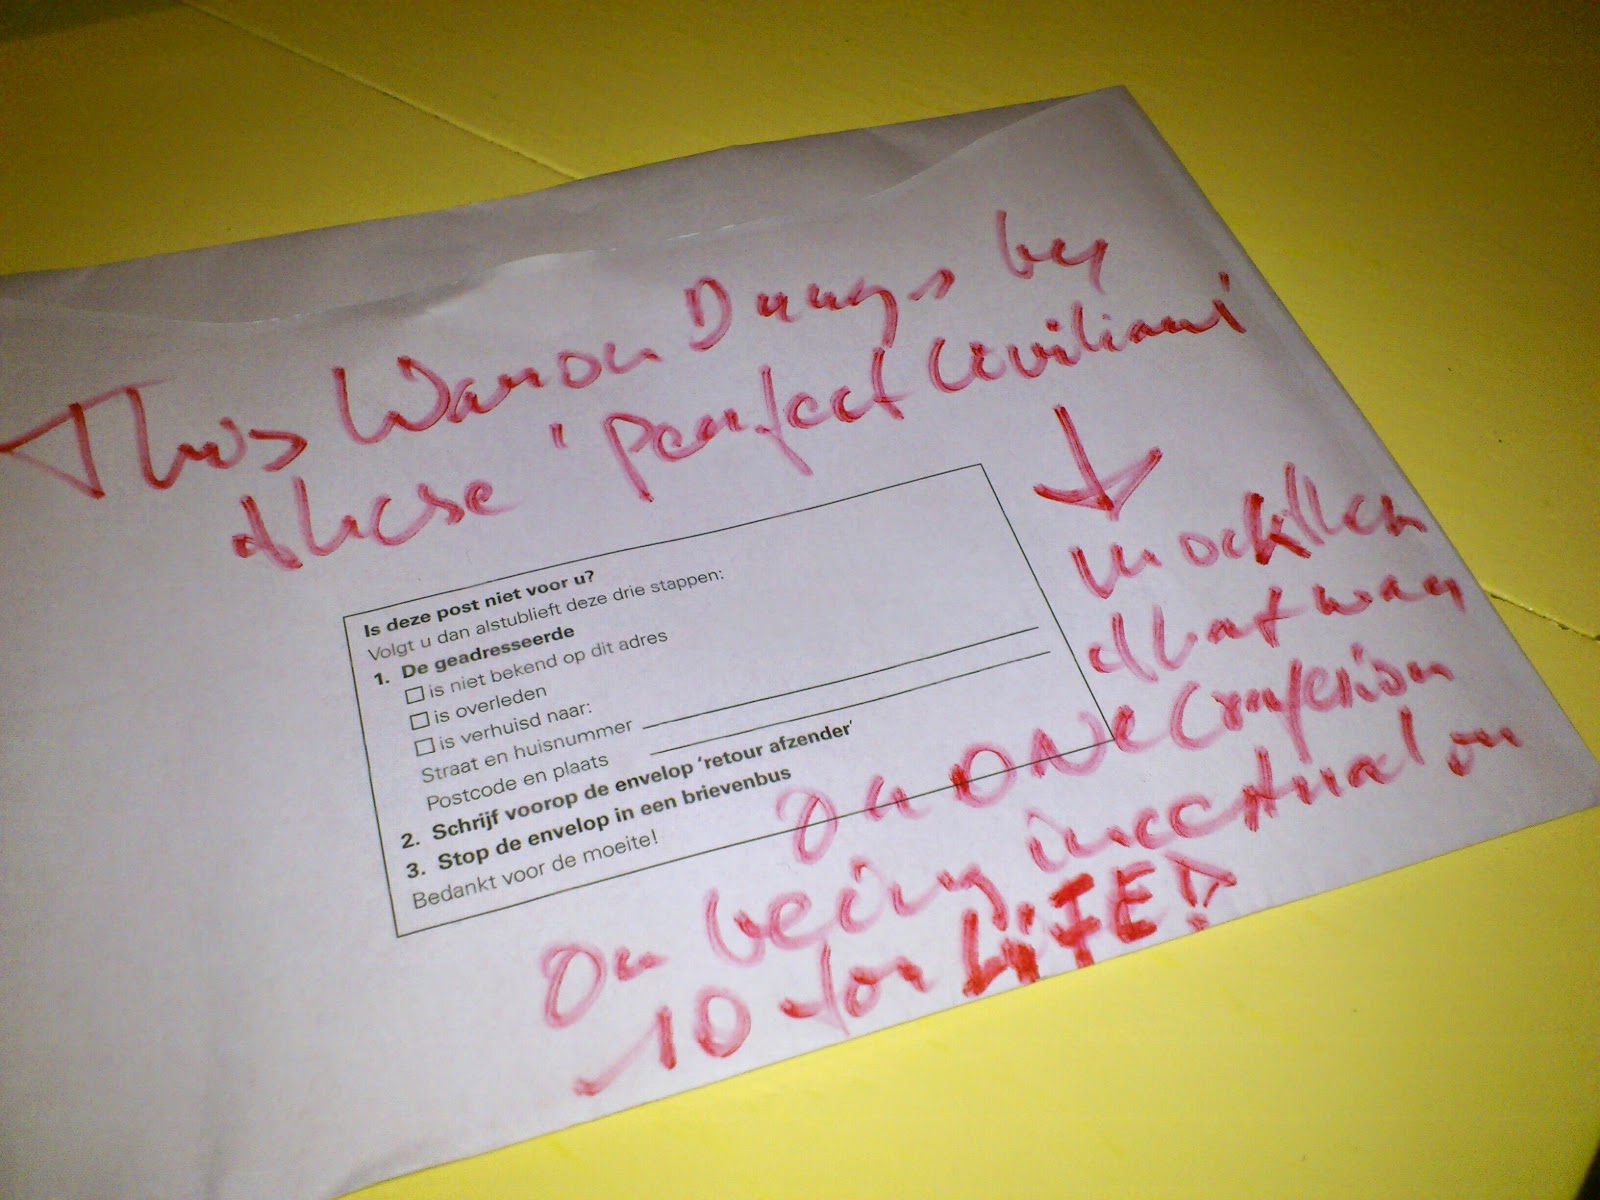 This War on Drugs by
these "perfect Civilians'
mock them
that way
on ONE Confesion
On being ineectual on
10 for LiFE!
Is deze post niet voor u?
Volgt u dan alstublieft deze drie stappen:
1. De geadresseerde
is niet bekend op dit adres
is overleden
is verhuisd naar:
Straat en huisnummer
Postcode en plaats
2. Schrijf voorop de envelop 'retour afzender'
3. Stop de envelop in een brievenbus
Bedankt voor de moeite!